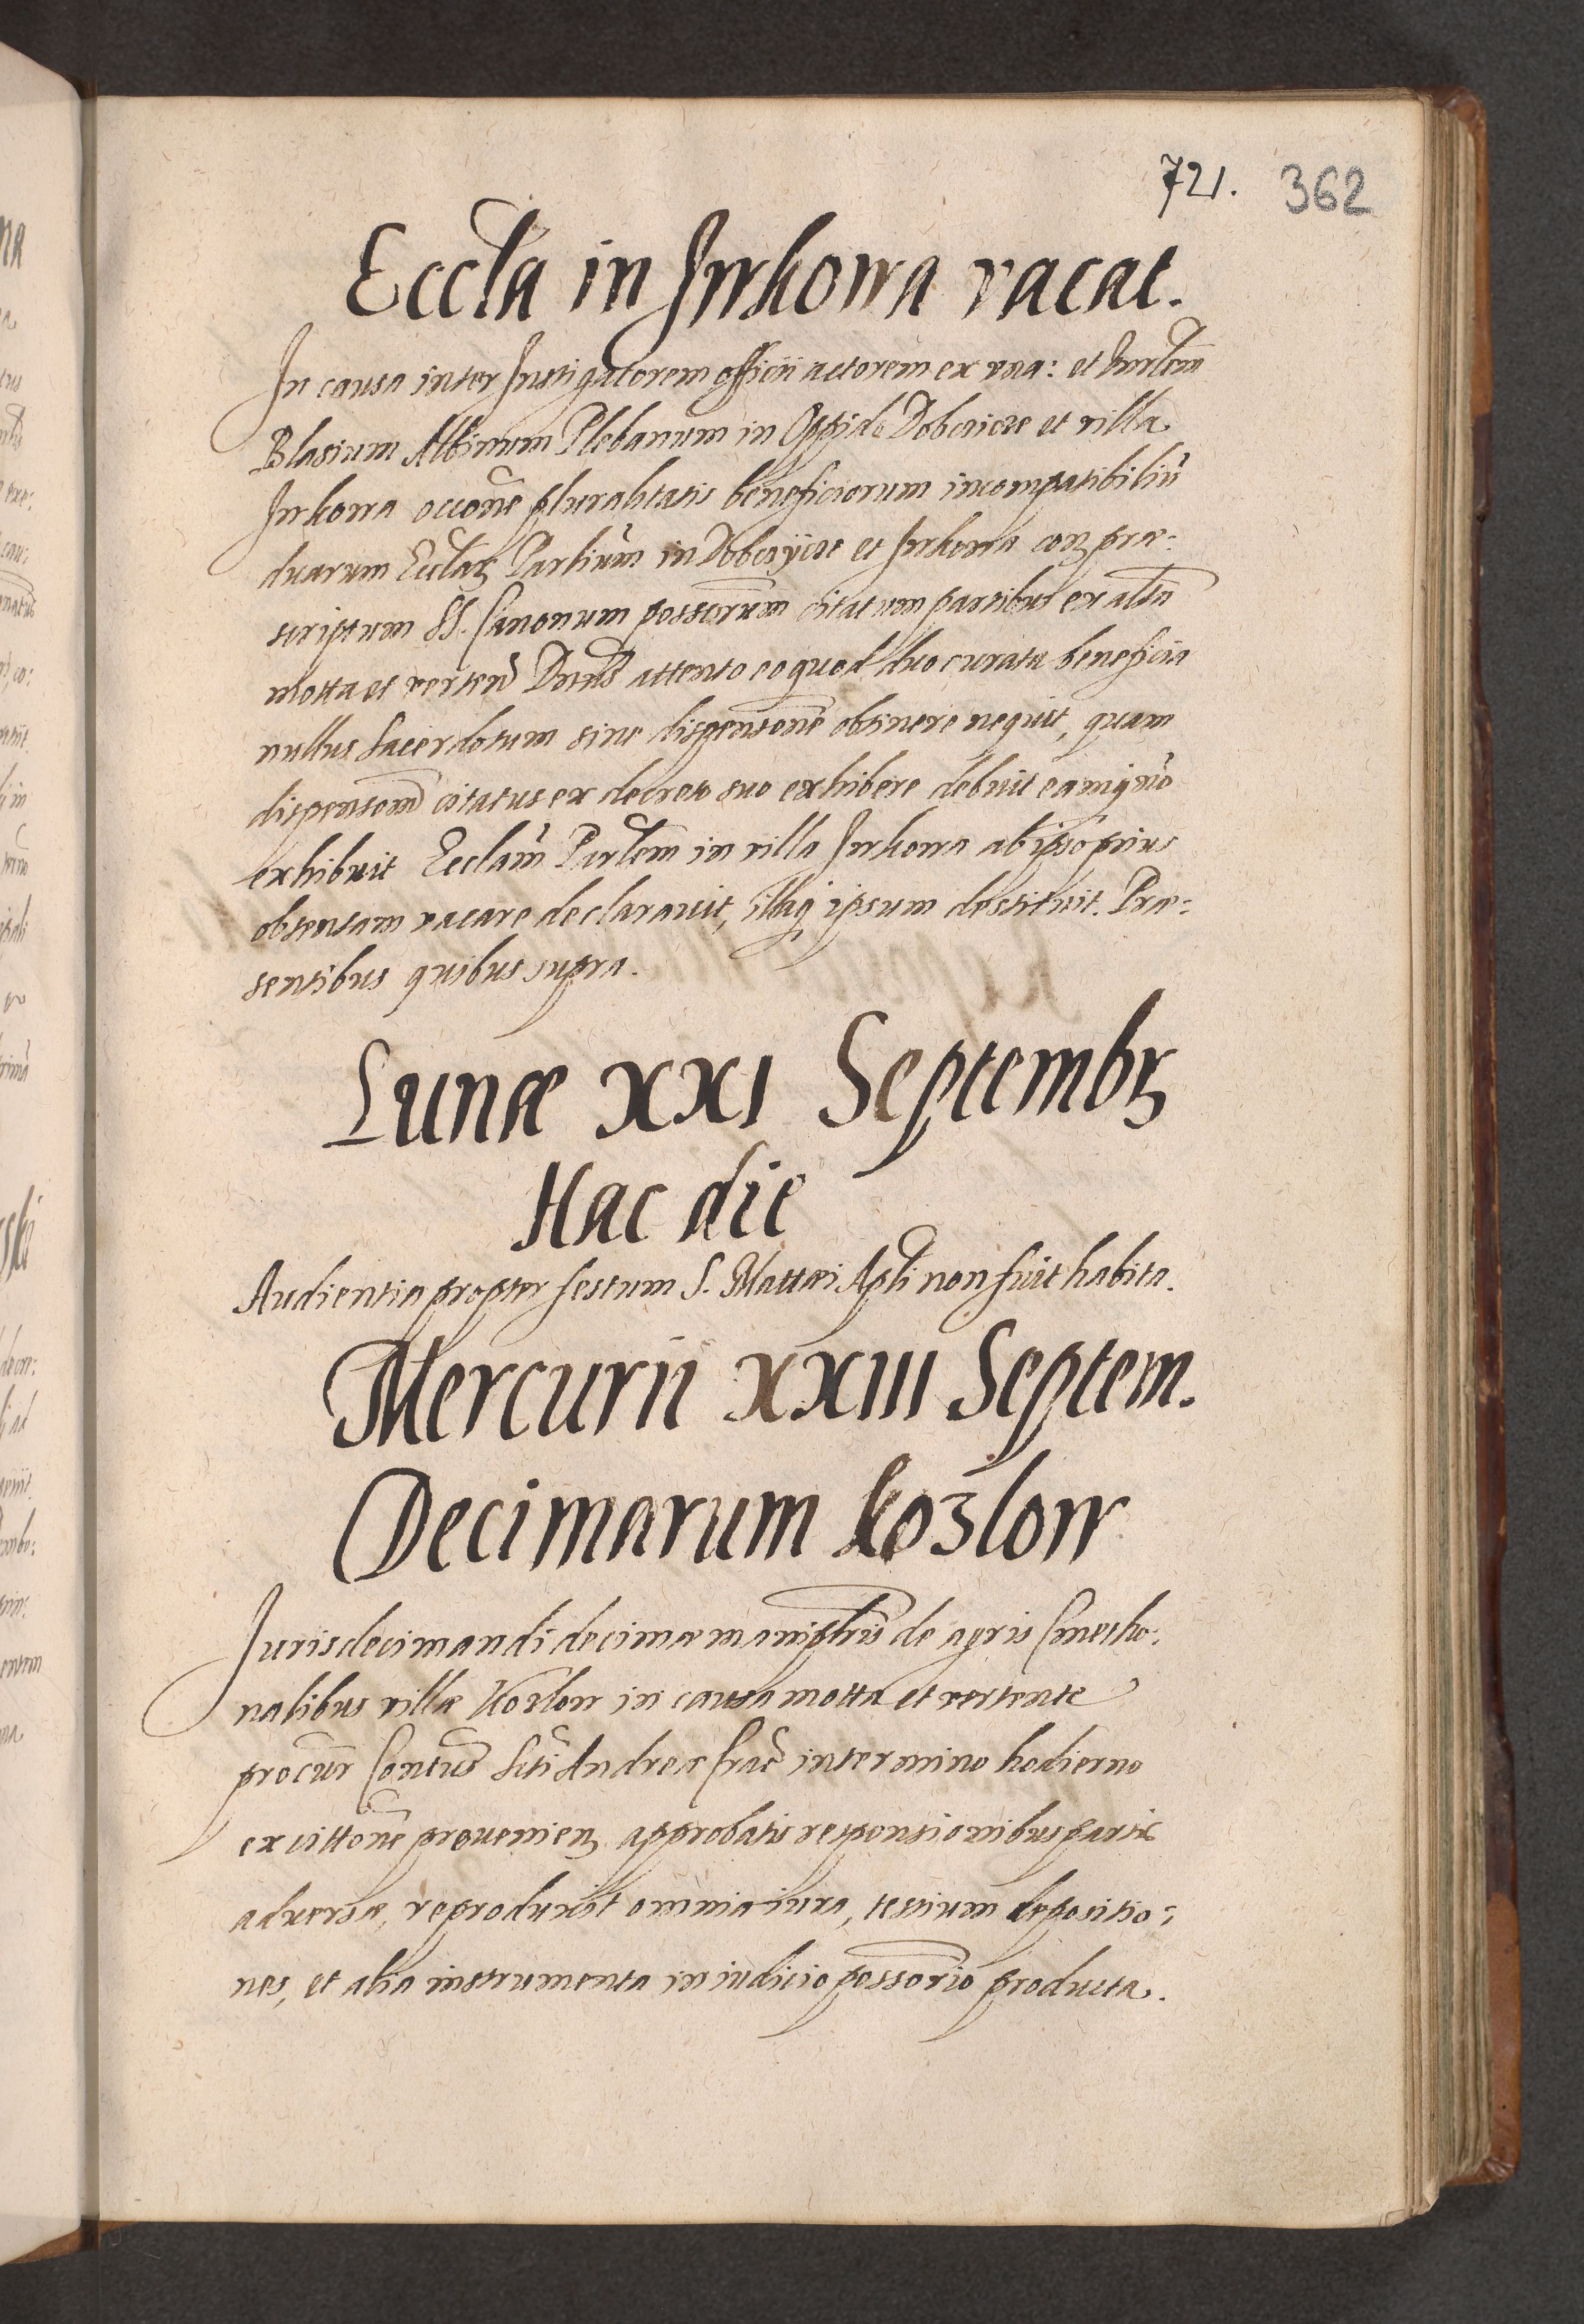 721. 362
Eccl̃a in Jwkowa vacat.
In causa inter Instigatorem officii actorem ex vna: et
Blasium Albinum Plebanum in Oppido Dobczicze et villa
Jwkowa occoñe pluralitatis beneficiorum incompatibiliũ
duarum Eccl̃aꝝ in Dobczÿcze et Jwkowa conꝫ præ:
scriptum SS. Canonum citatum partibus ex altã
motta et verteñ Dñus attento eo quod duo curata beneficia
nullus sacerdotum sine dispensoñe obtinere nequit, quam
dispensoñ citatus ex decreto suo exhibere debuit eamq̃ nõ
exhibuit Eccl̃am Parl̃em in villa Jwkowa ab ipso prius
obtentam vacare declarauit, illaq ipsum destituit. Præ:
sentibus quibus supra.
Lunæ XXI Septembꝫ
Hac die
Audientia propter festum S. Mattæi Apl̃i non fuit habita.
Mercurii XXIII Septem.
Decimarum Kozlow
Juris decimandi decimæ manipl̃ris de agris Cmetho:
nalibus villæ Kozlow in causa motta et vertente
procur̃ Conuẽs Scĩ Andreæ Crac̃ in termino hodierno
ex cittoñe prouenienꝫ approbatis responsionibus partis
aduersæ, reproduxit omnia iura, testium depositio:
nes, et alia instrumenta in iudicio possorio producta.